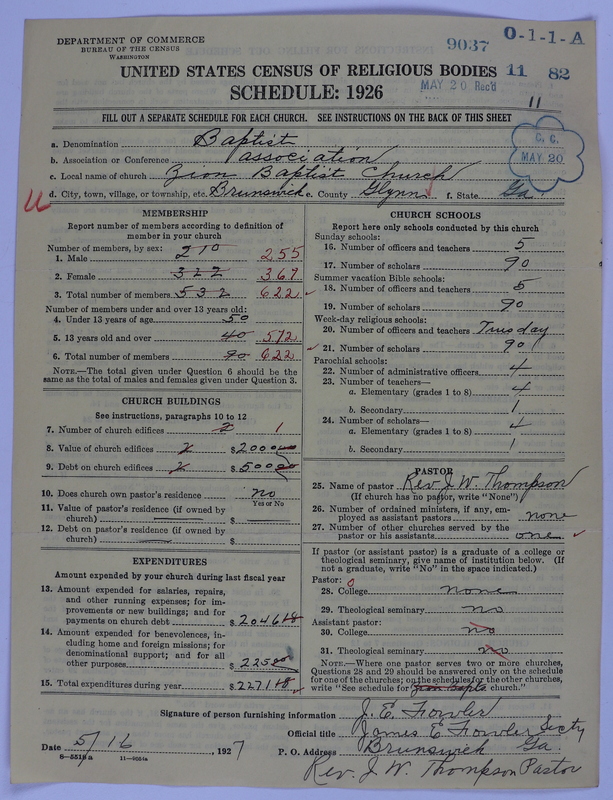 DEPARTMENT OF COMMERCE
BUREAU OF THE CENSUS
WASHINGTON
9037
O-1-1-A
UNITED STATES CENSUS OF RELIGIOUS BODIES
11 82
MAY 20 Rec'd
SCHEDULE: 1926
11
FILL OUT A SEPARATE SCHEDULE FOR EACH CHURCH. SEE INSTRUCTIONS ON THE BACK OF THIS SHEET
C. C.
MAY 20
a. Denomination Baptist
b. Association or Conference association
c. Local name of church Zion Baptist Church
d. City, town, village, or township, etc. Brunswick e. County Glynn f. State Ga
MEMBERSHIP
Report number of members according to definition of member in your church
Number of members, by sex:
1. Male 210 255
2. Female 322 367
3. Total number of members 532 622
Number of members under and over 13 years old:
4. Under 13 years of age 50
5. 13 years old and over 40 572
6. Total number of members 90 622
NOTE.—The total given under Question 6 should be the same as the total of males and females given under Question 3.
CHURCH BUILDINGS
See instructions, paragraphs 10 to 12
7. Number of church edifices 2 1
8. Value of church edifices 2 $2000
9. Debt on church edifices 2 $500
10. Does church own pastor's residence no
Yes or No
11. Value of pastor's residence (if owned by church) $
12. Debt on pastor's residence (if owned by church) $
EXPENDITURES
Amount expended by your church during last fiscal year
13. Amount expended for salaries, repairs, and other running expenses; for improvements or new buildings; and for payments on church debt $204618
14. Amount expended for benevolences, including home and foreign missions; for denominational support; and for all other purposes $22500
15. Total expenditures during year $227118
CHURCH SCHOOLS
Report here only schools conducted by this church
Sunday schools:
16. Number of officers and teachers 5
17. Number of scholars 90
Summer vacation Bible schools:
18. Number of officers and teachers 5
19. Number of scholars 90
Week-day religious schools:
20. Number of officers and teachers Tuesday
21. Number of scholars 90
Parochial schools:
22. Number of administrative officers 4
23. Number of teachers—
a. Elementary (grades 1 to 8) 4
b. Secondary 1
24. Number of scholars—
a. Elementary (grades 1 to 8) 4
b. Secondary 1
PASTOR
25. Name of pastor Rev. J. W. Thompson
(If church has no pastor, write "None")
26. Number of ordained ministers, if any, employed as assistant pastors none
27. Number of other churches served by the pastor or his assistants one
If pastor (or assistant pastor) is a graduate of a college or theological seminary, give name of institution below. (If not a graduate, write "No" in the space indicated.)
Pastor: 0
28. College none
29. Theological seminary no
Assistant pastor:
30. College no
31. Theological seminary no
NOTE.—Where one pastor serves two or more churches, Questions 28 and 29 should be answered only on the schedule for one of the churches; on the schedules for the other churches, write "See schedule for Zion Bapts church."
Signature of person furnishing information J. E. Fowler
Official title James E Fowler Secty
Date 5/16, 1927 P. O. Address Brunswick Ga.
8-5518a 11-9664a
Rev. J. W. Thompson Pastor